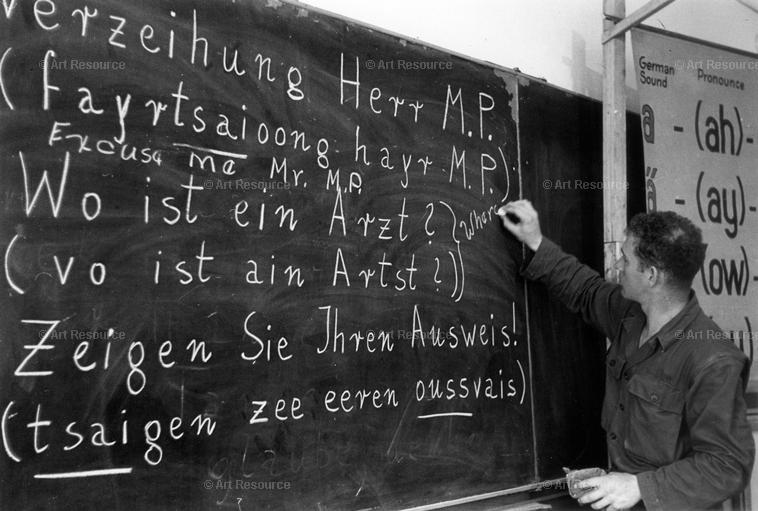 Verzeihung Herr M.P.
(fayrtsaioong hayr M.P.)
Excuse me Mr. M.P.
Wo ist ein Arzt?
(vo ist ain Artst?)
Where
Zeigen Sie Ihren Ausweis!
(tsaigen zee eeren oussvais)
glaube
German Sound Pronounce
a - (ah) -
ä - (ay) -
(ow) -
© Art Resource © Art Resource © Art Resource
© Art Resource © Art Resource © Art Resource
© Art Resource © Art Resource © Art Resource
© Art Resource © Art Resource © Art Resource